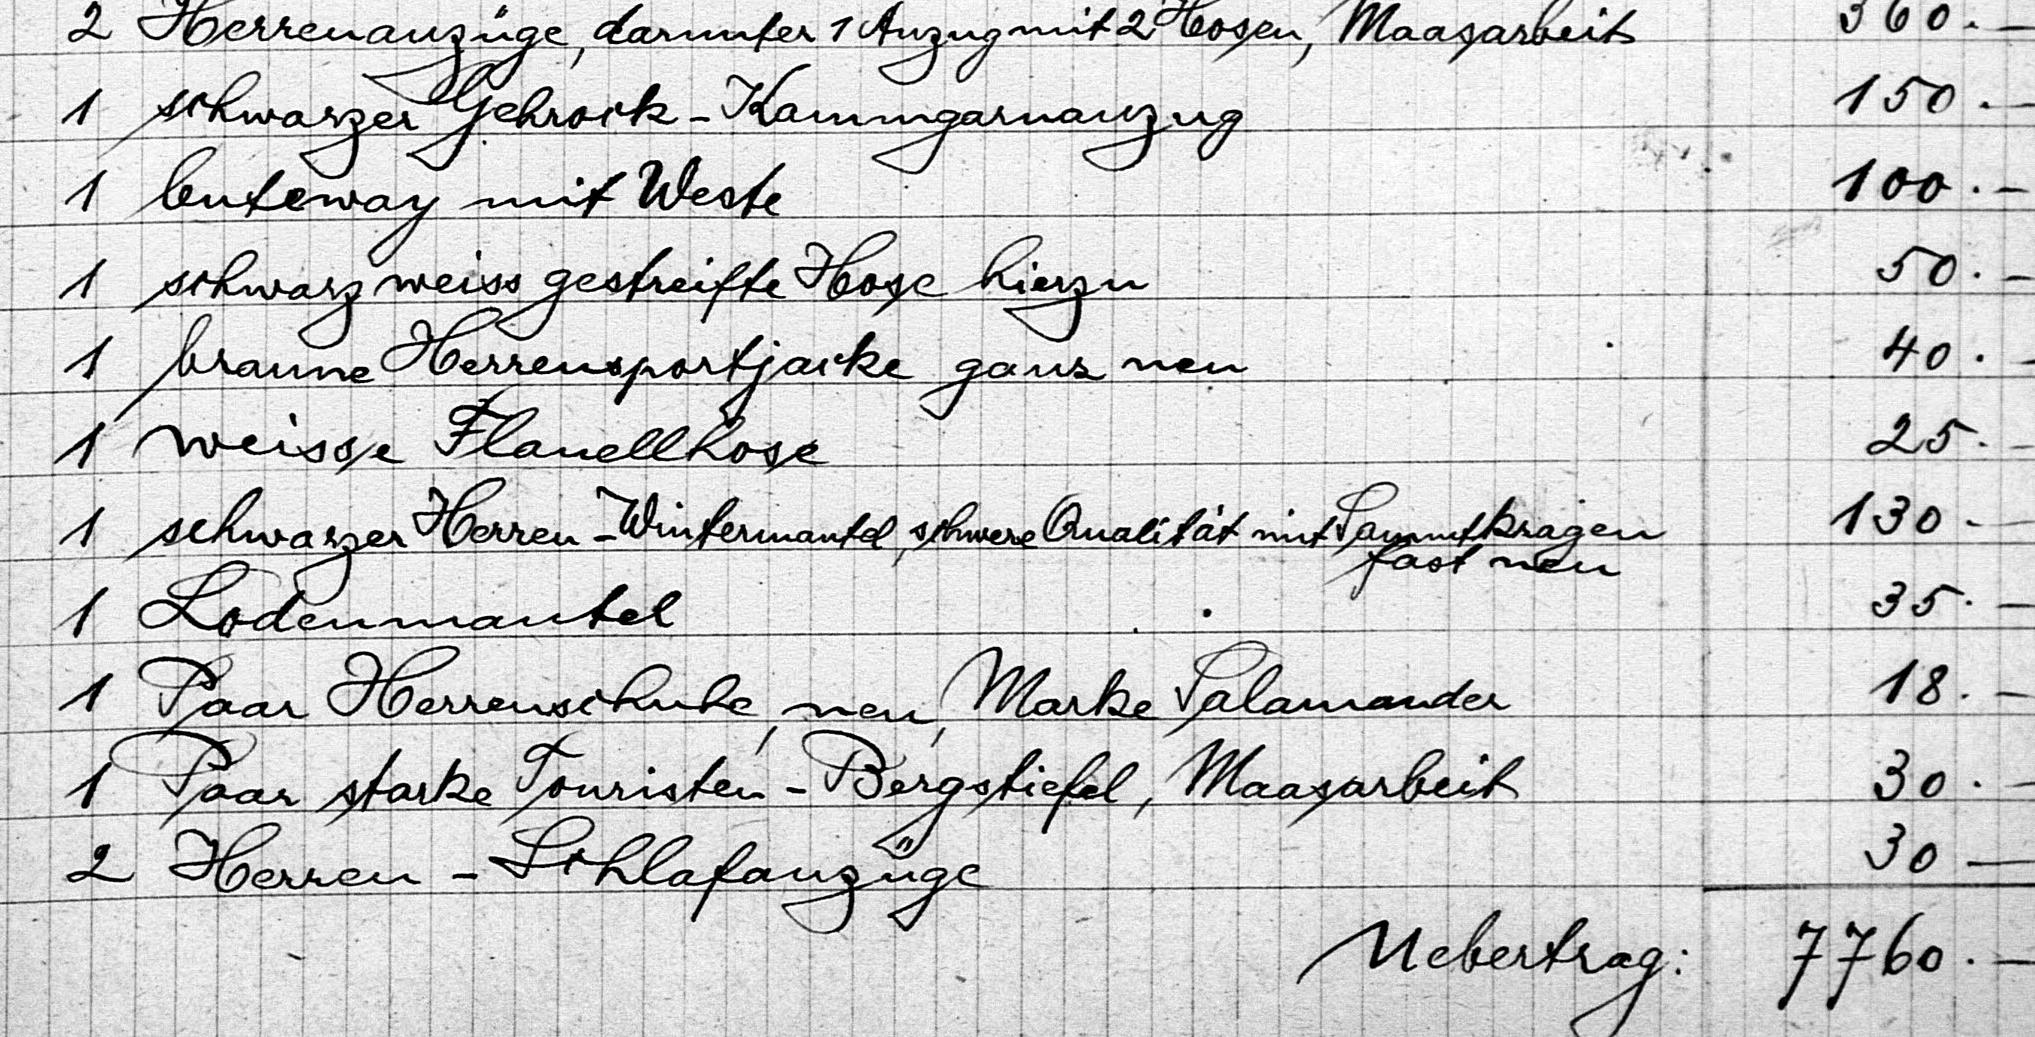 2 Herrenanzüge, darunter 1 Anzug mit 2 Hosen, Maasarbeit 360.—
1 schwarzer Gehrock - Kammgarnanzug 150.—
1 Cuteway mit Weste 100.—
1 schwarz weiss gestreifte Hose hierzu 50.—
1 braune Herrensportjacke ganz neu 40.—
1 weisse Flanellhose 25.—
1 schwarzer Herren-Wintermantel, schwere Qualität mit Sammtkragen 130.—
fast neu
1 Lodenmantel 35.—
1 Paar Herrenschuhe, neu, Marke Salamander 18.—
1 Paar starke Touristen-Bergstiefel, Maasarbeit 30.—
2 Herren-Schlafanzüge 30 —
Uebertrag: 7760.—